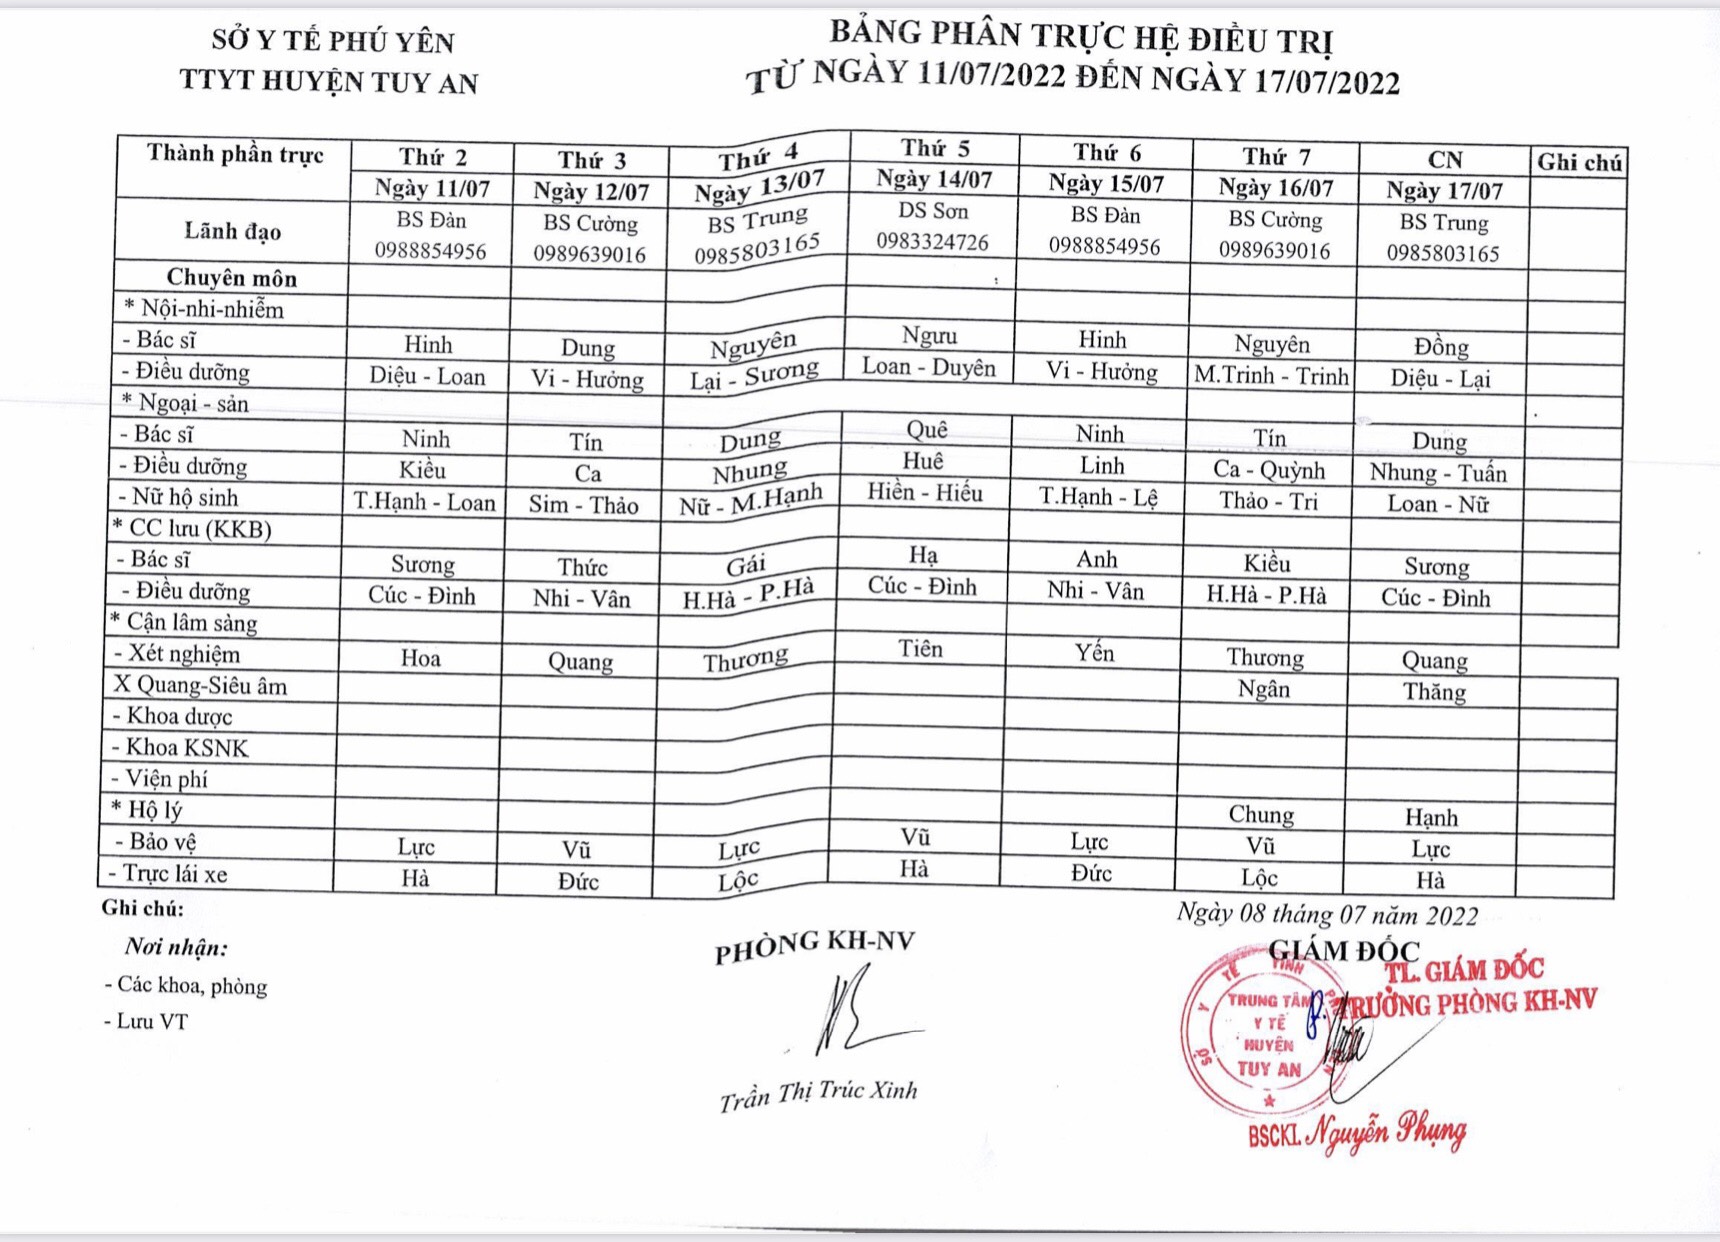 SỞ Y TẾ PHÚ YÊN
TTYT HUYỆN TUY AN
BẢNG PHÂN TRỰC HỆ ĐIỀU TRỊ
TỪ NGÀY 11/07/2022 ĐẾN NGÀY 17/07/2022
Thành phần trực Thứ 2 Thứ 3 Thứ 4 Thứ 5 Thứ 6 Thứ 7 CN Ghi chú
Ngày 11/07 Ngày 12/07 Ngày 13/07 Ngày 14/07 Ngày 15/07 Ngày 16/07 Ngày 17/07
Lãnh đạo BS Đàn BS Cường BS Trung DS Sơn BS Đàn BS Cường BS Trung
0988854956 0989639016 0985803165 0983324726 0988854956 0989639016 0985803165
Chuyên môn
* Nội-nhi-nhiễm
- Bác sĩ Hinh Dung Nguyên Ngưu Hinh Nguyên Đồng
- Điều dưỡng Diệu - Loan Vi - Hưởng Lại - Sương Loan - Duyên Vi - Hưởng M.Trinh - Trinh Diệu - Lại
* Ngoại - sản
- Bác sĩ Ninh Tín Dung Quê Ninh Tín Dung
- Điều dưỡng Kiều Ca Nhung Huê Linh Ca - Quỳnh Nhung - Tuấn
- Nữ hộ sinh T.Hạnh - Loan Sim - Thảo Nữ - M.Hạnh Hiền - Hiếu T.Hạnh - Lệ Thảo - Tri Loan - Nữ
* CC lưu (KKB)
- Bác sĩ Sương Thức Gái Hạ Anh Kiều Sương
- Điều dưỡng Cúc - Đình Nhi - Vân H.Hà - P.Hà Cúc - Đình Nhi - Vân H.Hà - P.Hà Cúc - Đình
* Cận lâm sàng
- Xét nghiệm Hoa Quang Thương Tiên Yến Thương Quang
X Quang-Siêu âm Ngân Thăng
- Khoa dược
- Khoa KSNK
- Viện phí
* Hộ lý Chung Hạnh
- Bảo vệ Lực Vũ Lực Vũ Lực Vũ Lực
- Trực lái xe Hà Đức Lộc Hà Đức Lộc Hà
Ghi chú:
Nơi nhận:
- Các khoa, phòng
- Lưu VT
PHÒNG KH-NV
Trần Thị Trúc Xinh
Ngày 08 tháng 07 năm 2022
GIÁM ĐỐC
TL. GIÁM ĐỐC
TRƯỞNG PHÒNG KH-NV
SỞ Y TẾ TỈNH PHÚ YÊN
TRUNG TÂM
Y TẾ
HUYỆN
TUY AN
BSCKI. Nguyễn Phụng